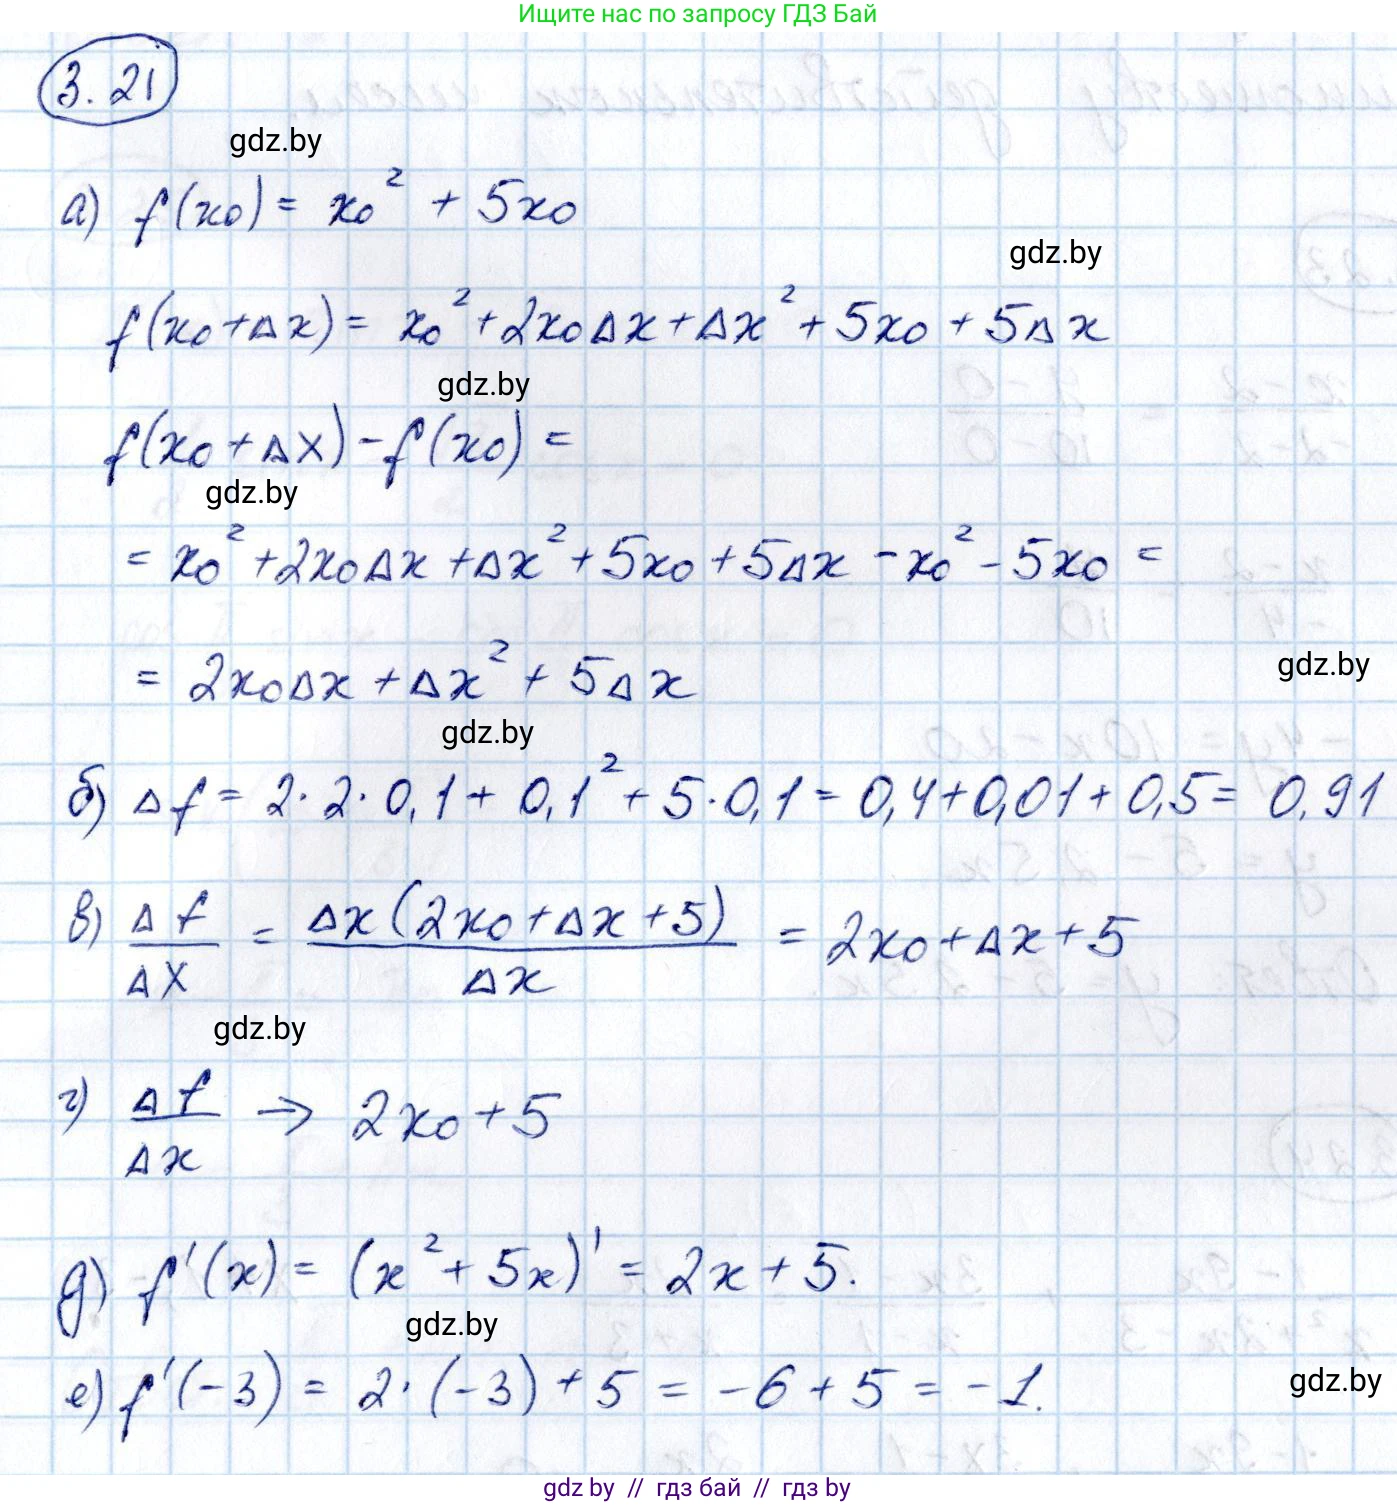 Ищите нас по запросу ГДЗ Бай
3.21
gdz.by
а) f(x₀) = x₀² + 5x₀
gdz.by
f(x₀+Δx) = x₀² + 2x₀Δx + Δx² + 5x₀ + 5Δx
gdz.by
f(x₀+Δx) - f(x₀) =
gdz.by
= x₀² + 2x₀Δx + Δx² + 5x₀ + 5Δx - x₀² - 5x₀ =
= 2x₀Δx + Δx² + 5Δx
gdz.by
gdz.by
б) Δf = 2·2·0,1 + 0,1² + 5·0,1 = 0,4 + 0,01 + 0,5 = 0,91
в) Δf/Δx = Δx(2x₀ + Δx + 5)/Δx = 2x₀ + Δx + 5
gdz.by
г) Δf/Δx → 2x₀ + 5
д) f'(x) = (x² + 5x)' = 2x + 5.
gdz.by
е) f'(-3) = 2·(-3) + 5 = -6 + 5 = -1.
gdz.by
gdz by // гдз бай // гдз by